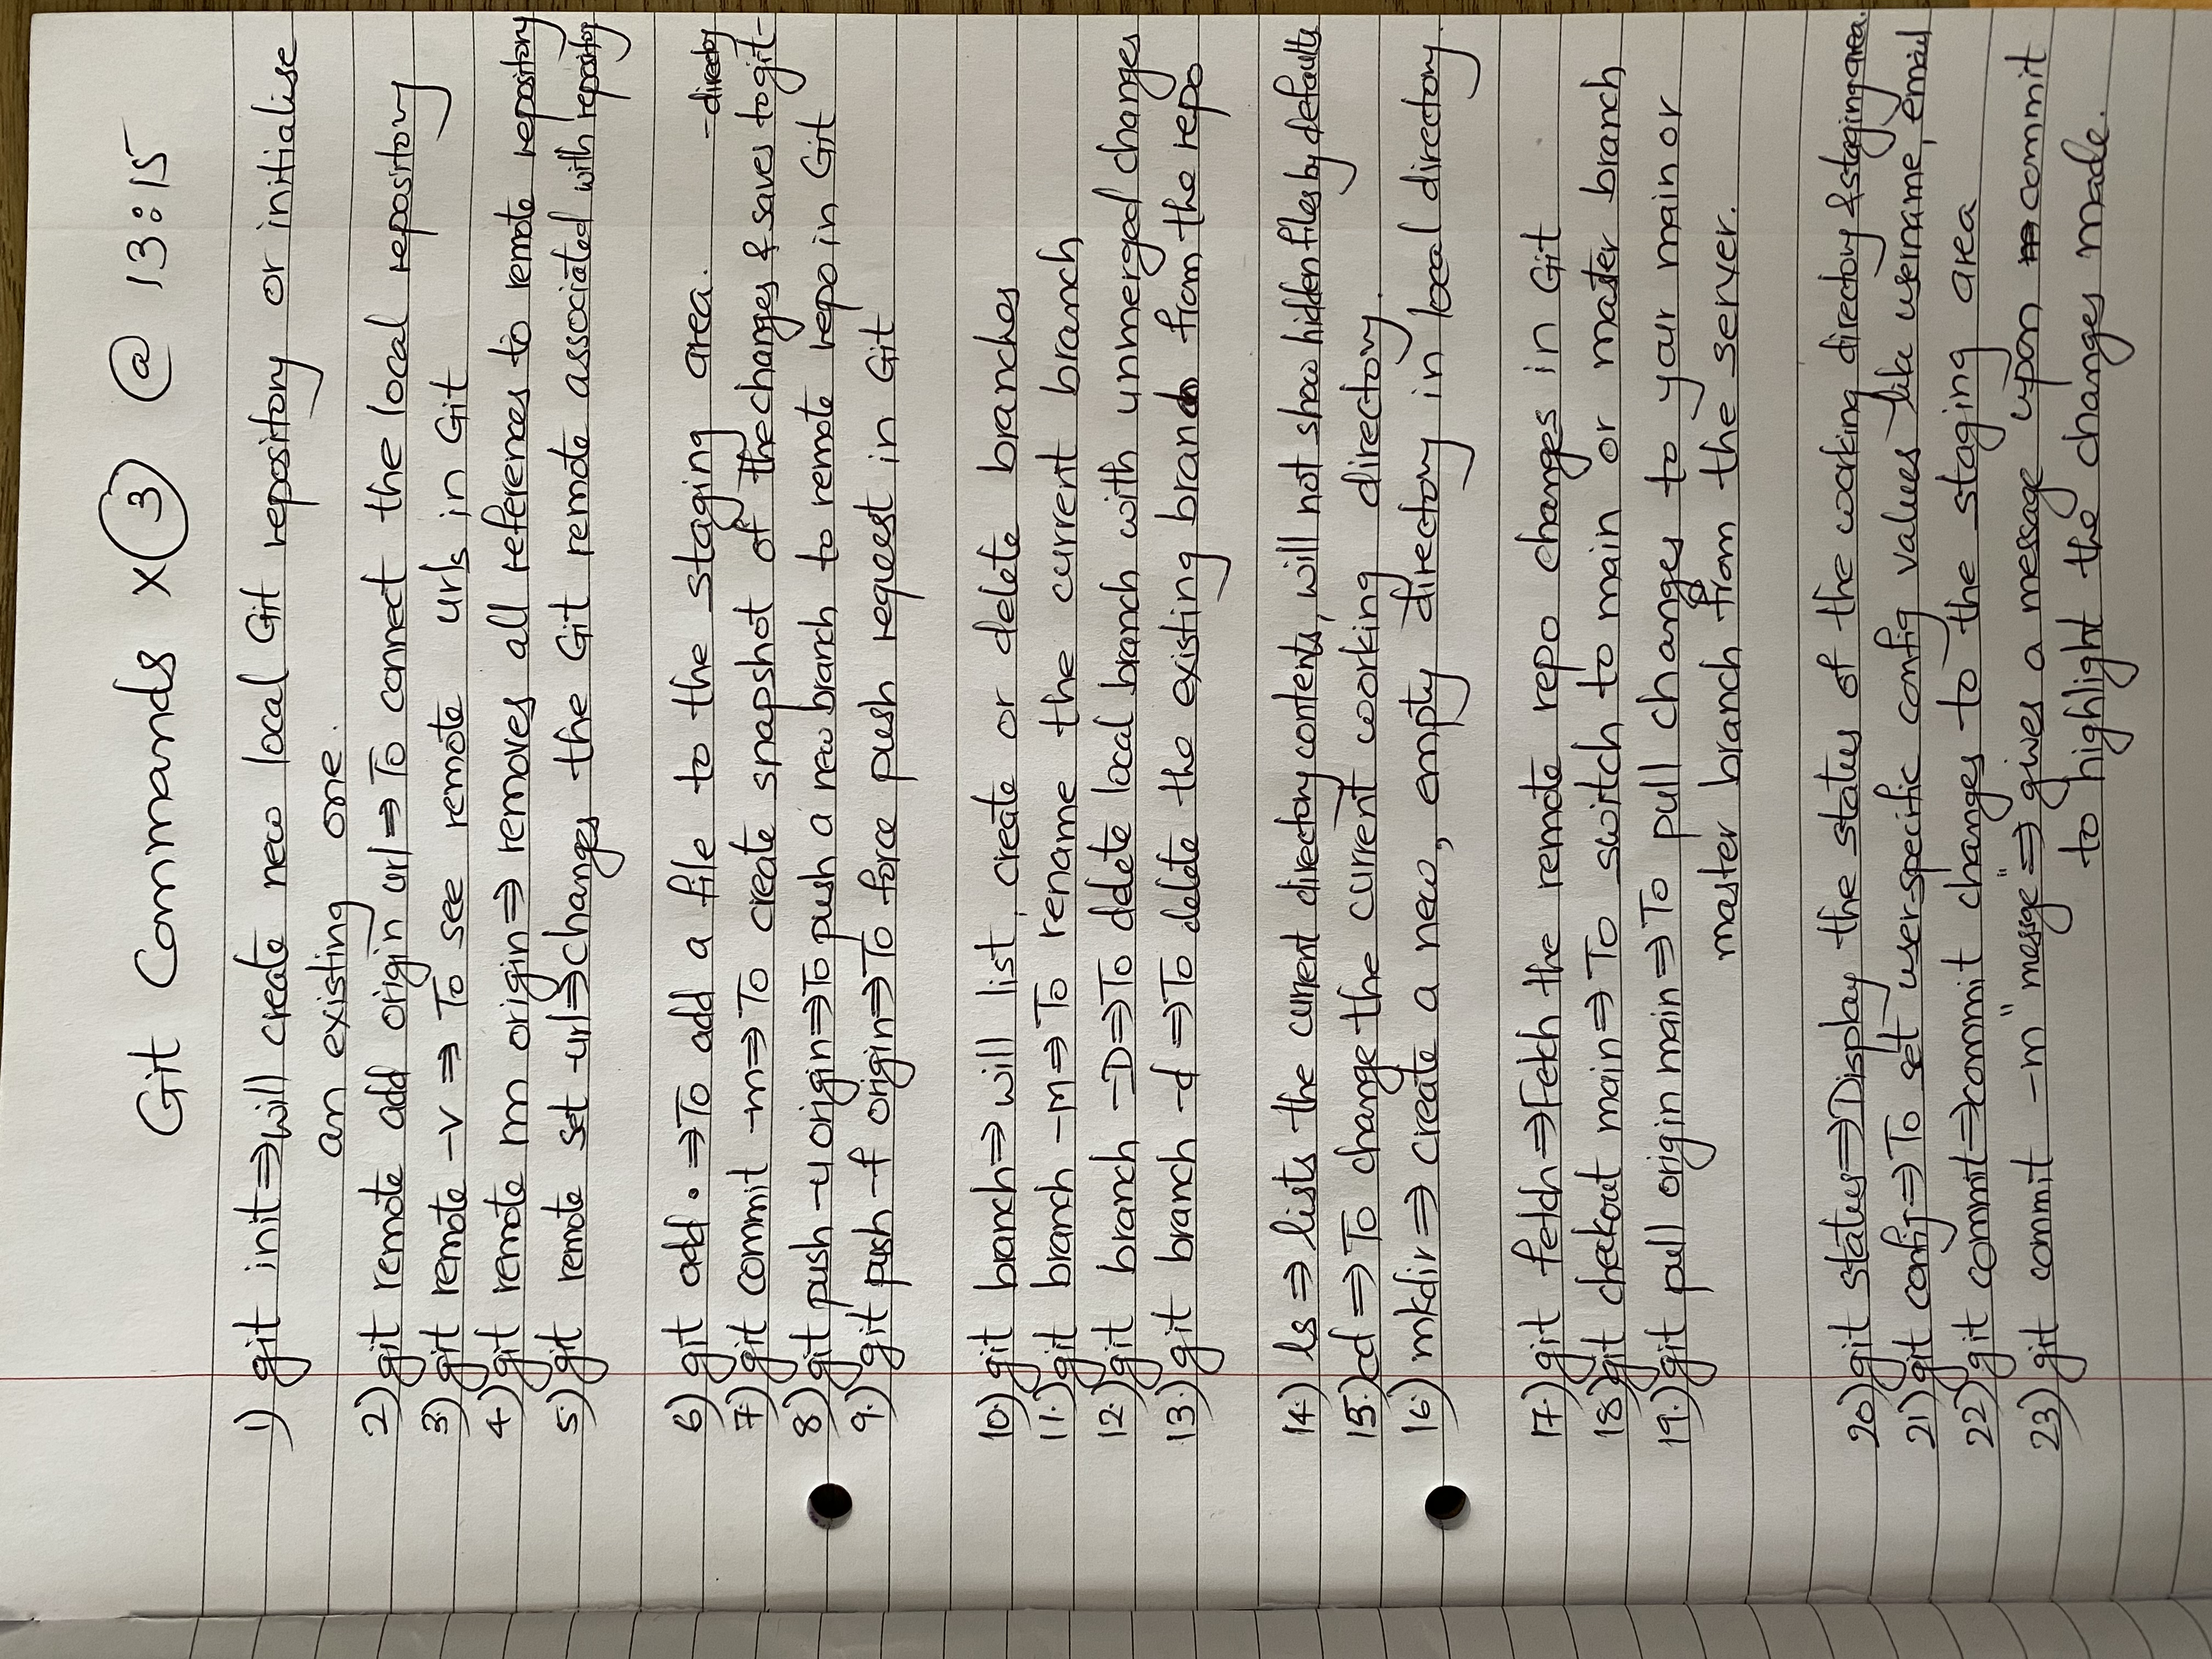 Git Commands x 3 @ 13:15
1) git init ⇒ will create new local Git repository or initialise
an existing one.
2) git remote add origin url ⇒ To connect the local repository
3) git remote -v ⇒ To see remote urls in Git
4) git remote rm origin ⇒ removes all references to remote repository
5) git remote set -url ⇒ changes the Git remote associated with repository
6) git add . ⇒ To add a file to the staging area.
-directory
7) git commit -m ⇒ To create snapshot of the changes & saves to git-
8) git push -u origin ⇒ To push a new branch to remote repo in Git
9.) git push -f origin ⇒ To force push request in Git
10.) git branch ⇒ will list, create or delete branches
11.) git branch -m ⇒ To rename the current branch
12.) git branch -D ⇒ To delete local branch with unmerged changes
13.) git branch -d ⇒ To delete the existing branch from the repo
14.) ls ⇒ lists the current directory contents, will not show hidden files by defaults
15.) cd ⇒ To change the current working directory.
16.) mkdir ⇒ create a new, empty directory in local directory.
17.) git fetch ⇒ Fetch the remote repo changes in Git
18) git checkout main ⇒ To switch to main or master branch
19.) git pull origin main ⇒ To pull changes to your main or
master branch from the server.
20) git status ⇒ Display the status of the working directory & staging area.
21) git config ⇒ To set user-specific config values like username, email
22) git commit ⇒ commit changes to the staging area
23) git commit -m "messge" ⇒ gives a message upon commit
to highlight the changes made.